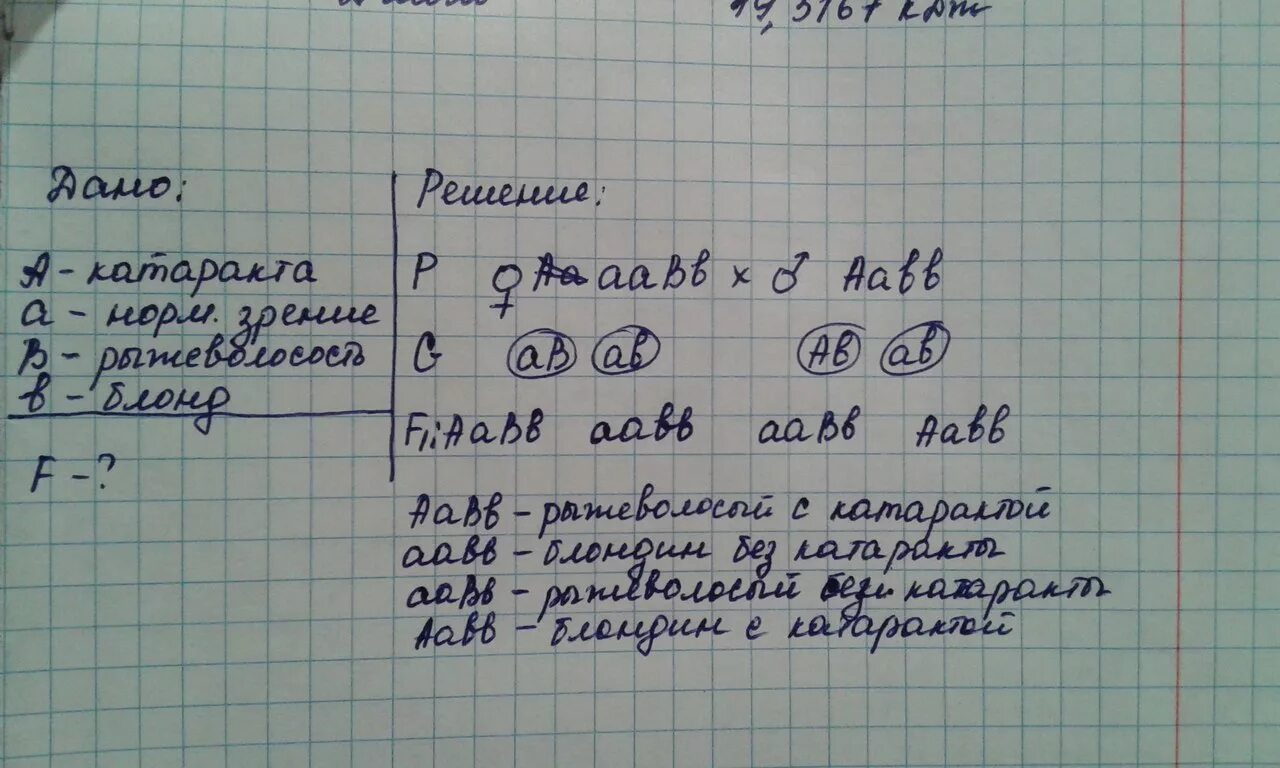 19,3767 кДж
Дано:
А - катаракта
а - норм. зрение
В - рыжеволосость
в - блонд
F - ?
Решение:
Р ♀ Аа ааВв × ♂ Аавв
G аВ ав Ав ав
F₁: АаВв аавв ааВв Аавв
АаВв - рыжеволосый с катарактой
аавв - блондин без катаракты
ааВв - рыжеволосый без катаракты
Аавв - блондин с катарактой